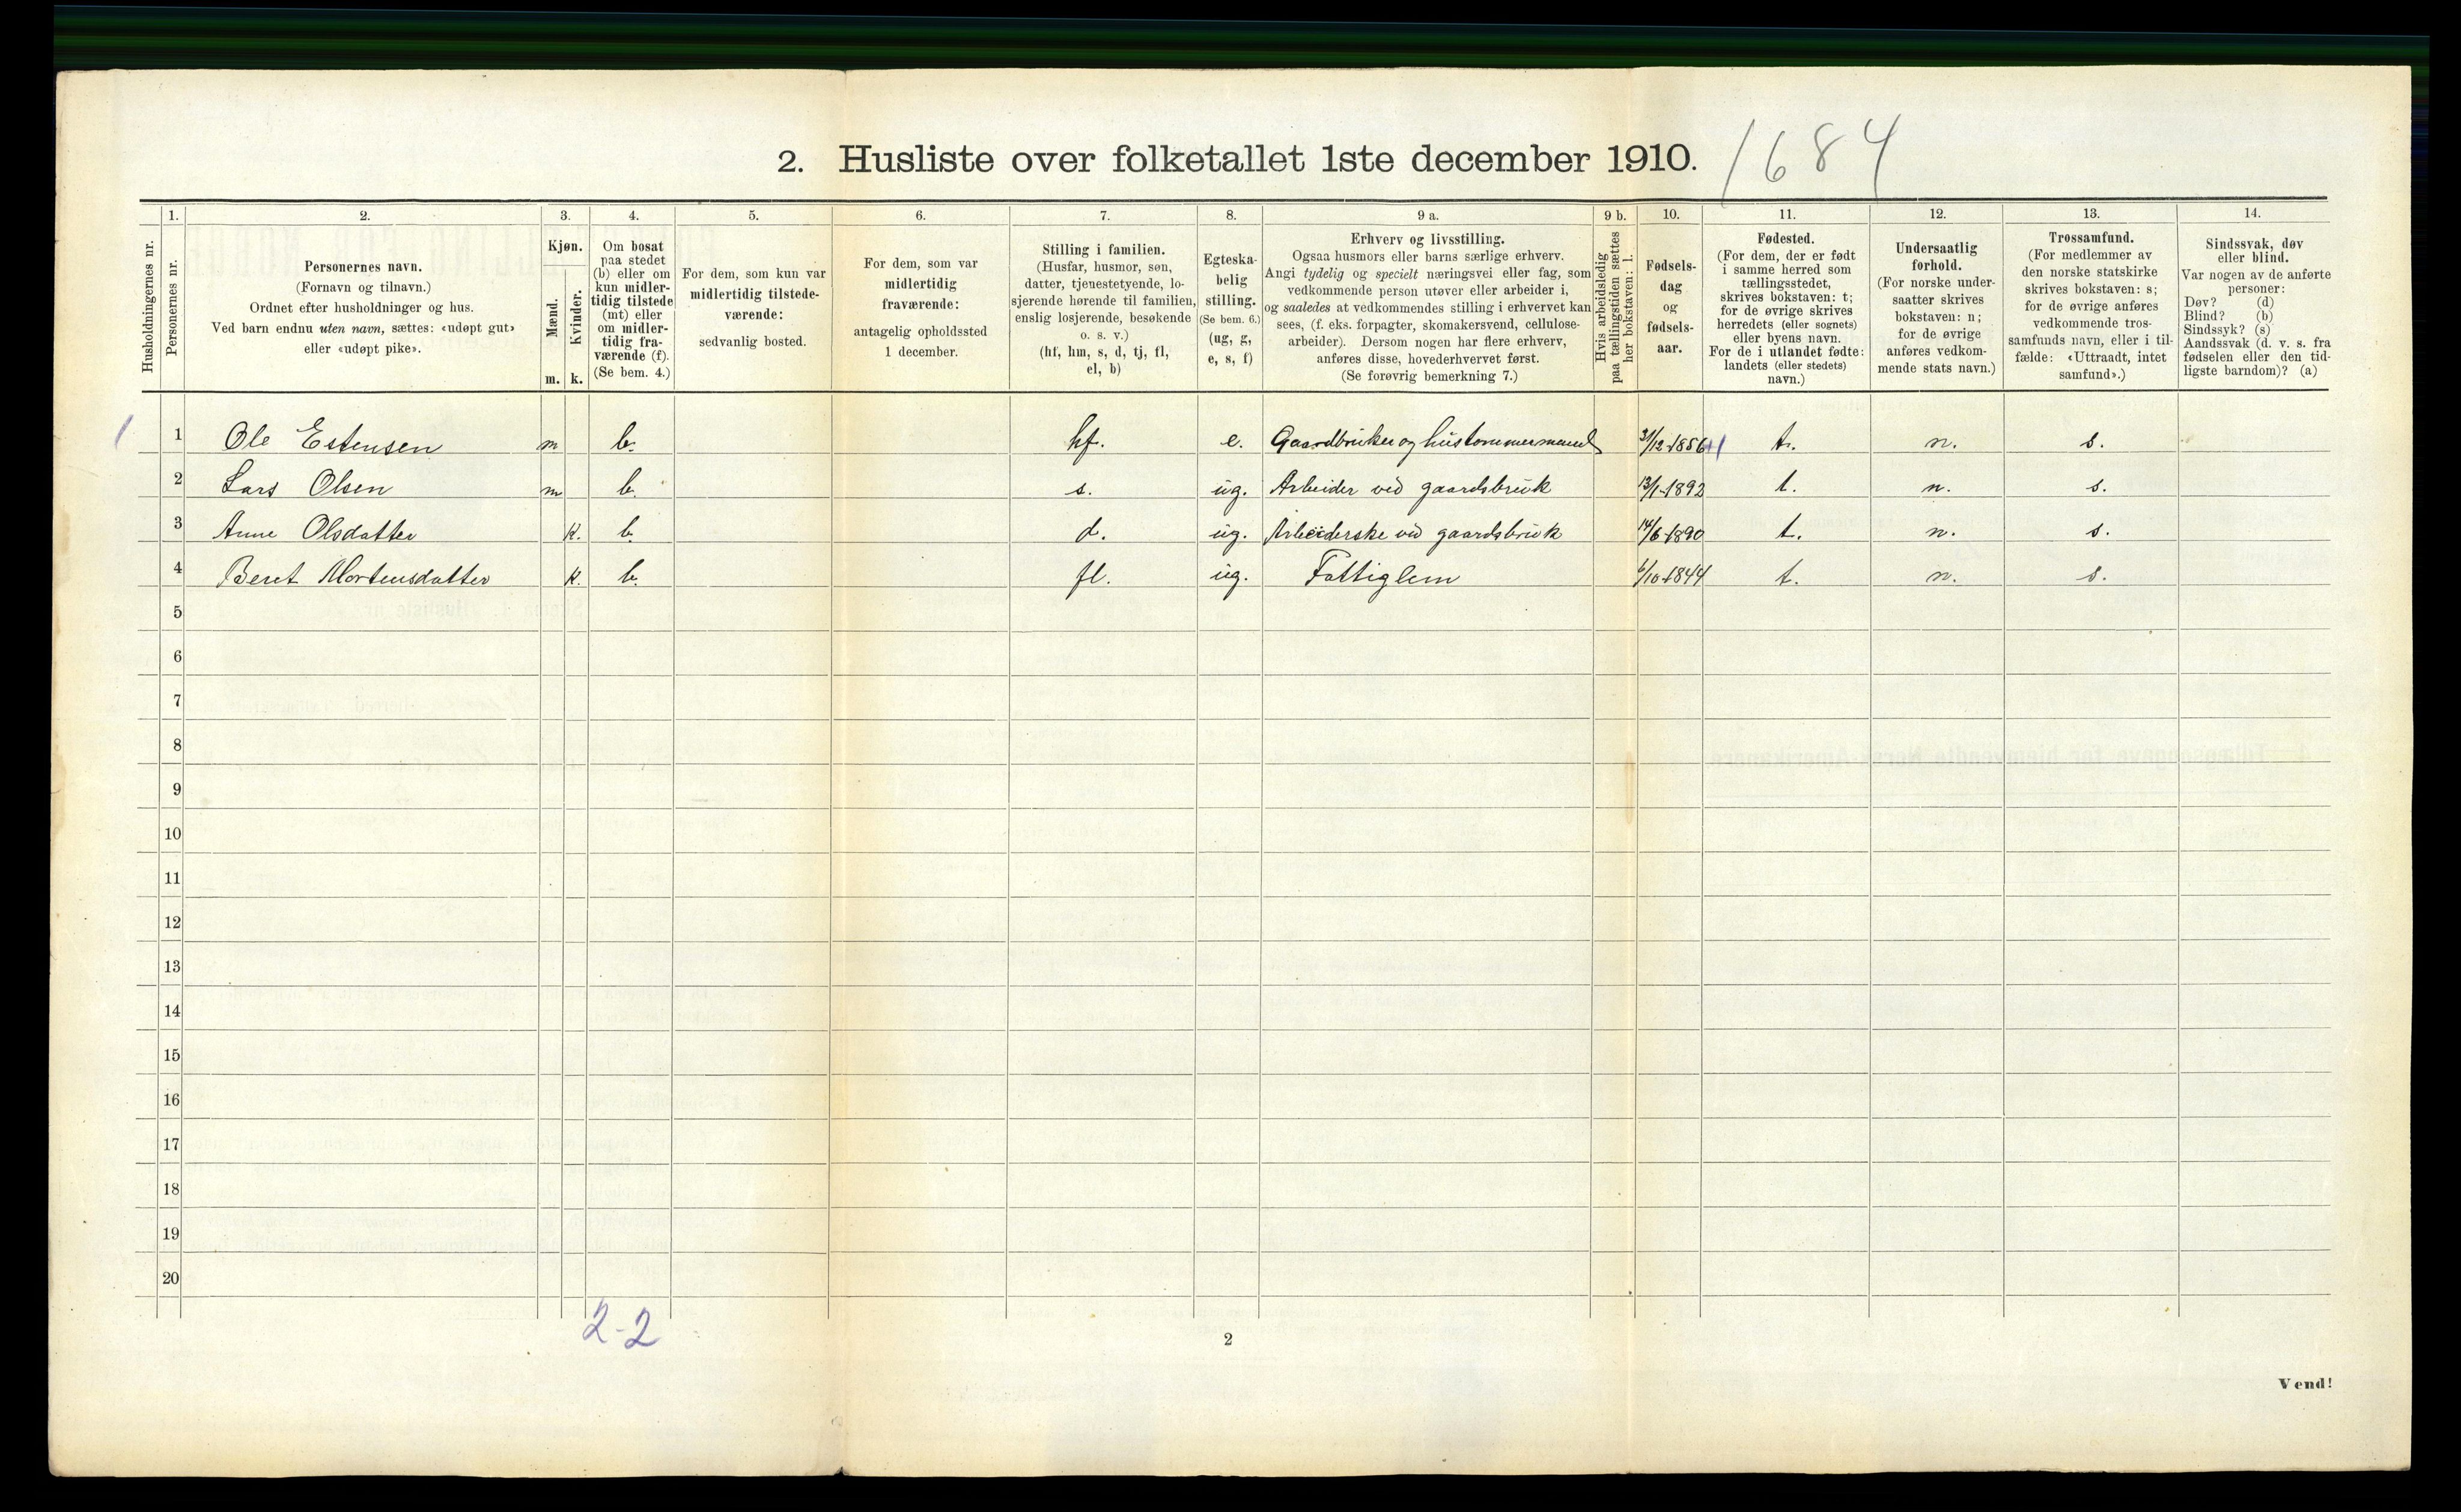 2. Husliste over folketallet 1ste december 1910.
1684
1.
2.
3.
4.
5.
6.
7.
8.
9 a.
9 b.
10.
11.
12.
13.
14.
Husholdningernes nr.
Personernes nr.
Personernes navn.
(Fornavn og tilnavn.)
Ordnet efter husholdninger og hus.
Ved barn endnu uten navn, sættes: «udøpt gut»
eller «udøpt pike».
Kjøn.
Mænd.
Kvinder.
m. k.
Om bosat
paa stedet
(b) eller om
kun midler-
tidig tilstede
(mt) eller
om midler-
tidig fra-
værende (f).
(Se bem. 4.)
For dem, som kun var
midlertidig tilstede-
værende:
sedvanlig bosted.
For dem, som var
midlertidig
fraværende:
antagelig opholdssted
1 december.
Stilling i familien.
(Husfar, husmor, søn,
datter, tjenestetyende, lo-
sjerende hørende til familien,
enslig losjerende, besøkende
o. s. v.)
(hf, hm, s, d, tj, fl,
el, b)
Egteska-
belig
stilling.
(Se bem. 6.)
(ug, g,
e, s, f)
Erhverv og livsstilling.
Ogsaa husmors eller barns særlige erhverv.
Angi tydelig og specielt næringsvei eller fag, som
vedkommende person utøver eller arbeider i,
og saaledes at vedkommendes stilling i erhvervet kan
sees, (f. eks. forpagter, skomakersvend, cellulose-
arbeider). Dersom nogen har flere erhverv,
anføres disse, hovederhvervet først.
(Se forøvrig bemerkning 7.)
Hvis arbeidsledig
paa tællingstiden sættes
her bokstaven: l.
Fødsels-
dag
og
fødsels-
aar.
Fødested.
(For dem, der er født
i samme herred som
tællingsstedet,
skrives bokstaven: t;
for de øvrige skrives
herredets (eller sognets)
eller byens navn.
For de i utlandet fødte:
landets (eller stedets)
navn.)
Undersaatlig
forhold.
(For norske under-
saatter skrives
bokstaven: n;
for de øvrige
anføres vedkom-
mende stats navn.)
Trossamfund.
(For medlemmer av
den norske statskirke
skrives bokstaven: s;
for de øvrige anføres
vedkommende tros-
samfunds navn, eller i til-
fælde: «Uttraadt, intet
samfund».)
Sindssvak, døv
eller blind.
Var nogen av de anførte
personer:
Døv? (d)
Blind? (b)
Sindssyk? (s)
Aandssvak (d. v. s. fra
fødselen eller den tid-
ligste barndom)? (a)
1 1 Ole Estensen m b. hf. e. Gaardbruker og hustømmermand 31/12-1856 t. n. s.
2 Lars Olsen m b. s. ug. Arbeider ved gaardsbruk 13/1-1892 t. n. s.
3 Anne Olsdatter k. b. d. ug. Arbeiderske ved gaardsbruk 14/6-1890 t. n. s.
4 Beret Mortensdatter k. b. fl. ug. Fattiglem 6/10-1844 t. n. s.
5
6
7
8
9
10
11
12
13
14
15
16
17
18
19
20
2-2
2
Vend!